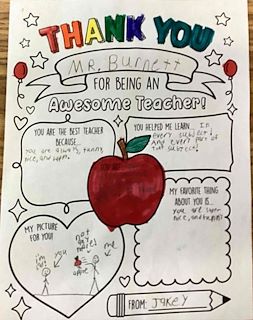 THANK YOU
Mr. Burnett
FOR BEING AN
Awesome Teacher!
YOU ARE THE BEST TEACHER
BECAUSE...
you are always, funny,
nice, and
YOU HELPED ME LEARN... In
every subject!
And every part of
that subject!
MY FAVORITE THING
ABOUT YOU IS...
you are super
nice, and
MY PICTURE
FOR YOU!
you
not
me
apple
FROM: Jakey